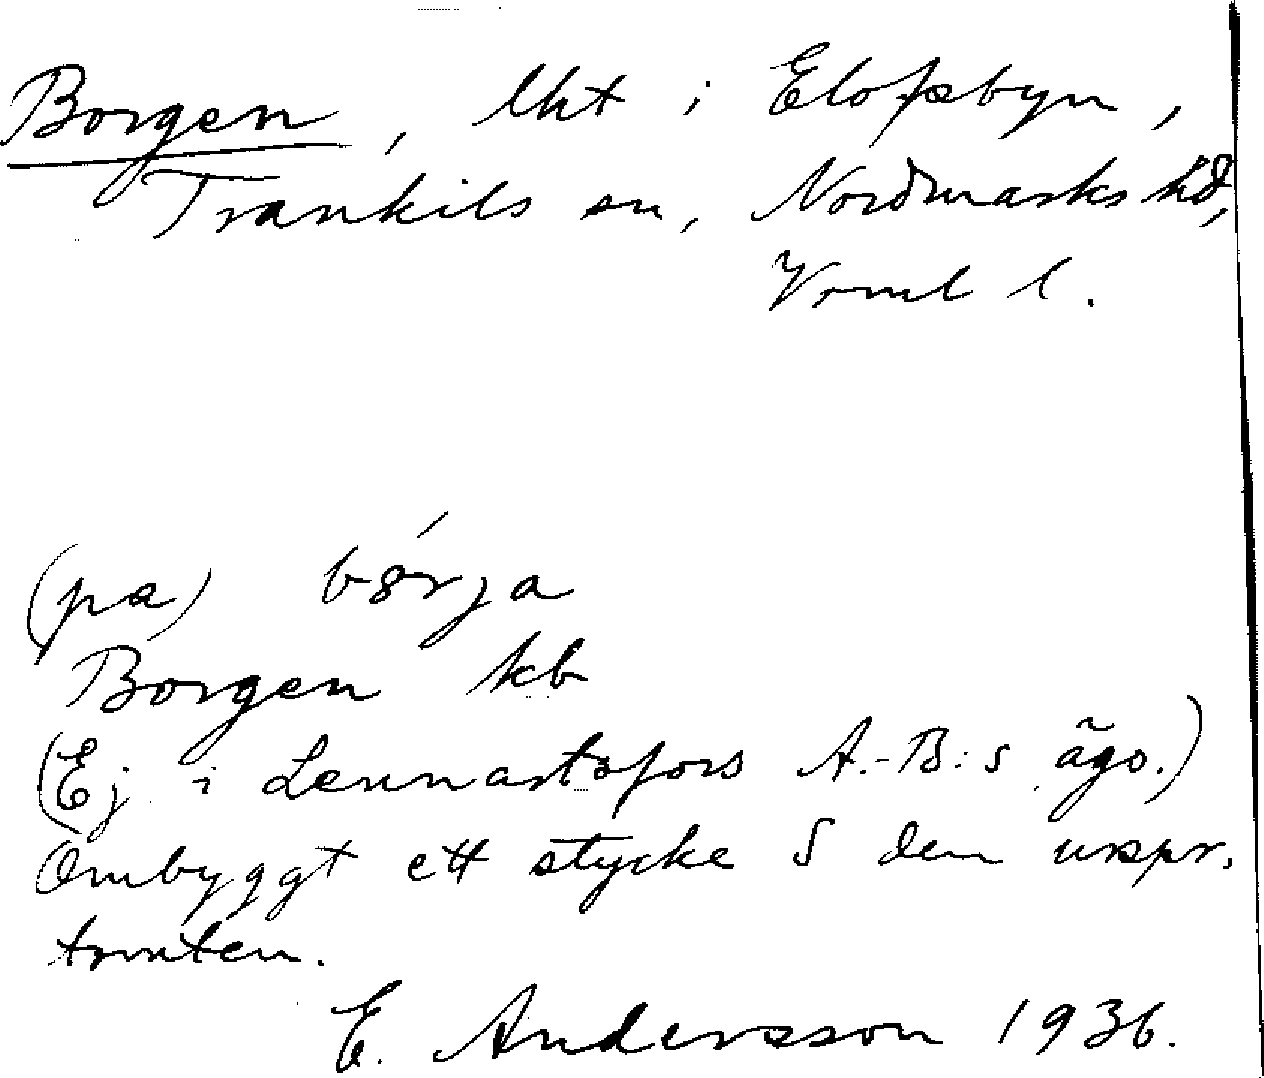 Borgen, lht i Elofsbyn,
Trankils sn, Nordmarks hd,
Vrml l.
(pa) b8́rja
Borgen kb
(Ej i Lennartsfors A.-B:s ägo.)
Ombyggt ett stycke S den urspr.
tomten.
E. Andersson 1936.